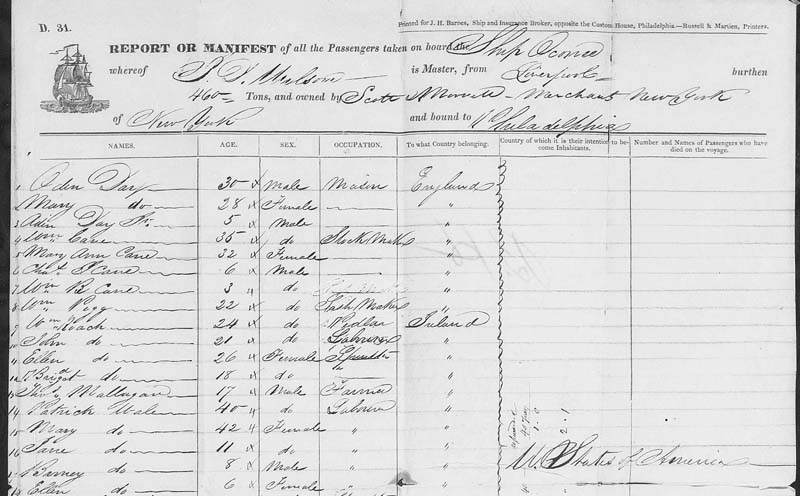 D. 31.
Printed for J. H. Barnes, Ship and Insurance Broker, opposite the Custom House, Philadelphia.—Russell & Martien, Printers.
REPORT OR MANIFEST of all the Passengers taken on board the Ship Oconee
whereof is Master, from Liverpool burthen
460 Tons, and owned by Scott Merchant New York
of New York and bound to Philadelphia
NAMES. AGE. SEX. OCCUPATION. To what Country belonging. Country of which it is their intention to become Inhabitants. Number and Names of Passengers who have died on the voyage.
1 Oden Day 30 Male Mason England
2 Mary do 28 Female "
3 Oden Day Jr. 5 Male "
4 Wm Cane 35 do Stock Maker "
5 Mary Ann Cane 32 Female "
6 Chas. Cane 6 Male "
7 Wm R Cane 3 do "
8 Wm Pegg 22 do Sash Maker "
9 Wm Roach 24 do Pedlar Ireland
10 John do 21 do Labourer "
11 Ellen do 26 Female "
12 Bridget do 18 do "
13 Thos. Mallagan 17 Male Farmer "
14 Patrick 40 do Labourer "
15 Mary do 42 Female " "
16 Jane do 11 do " "
17 Barney do 8 Male " " U. States of America
18 Ellen do 6 Female " "